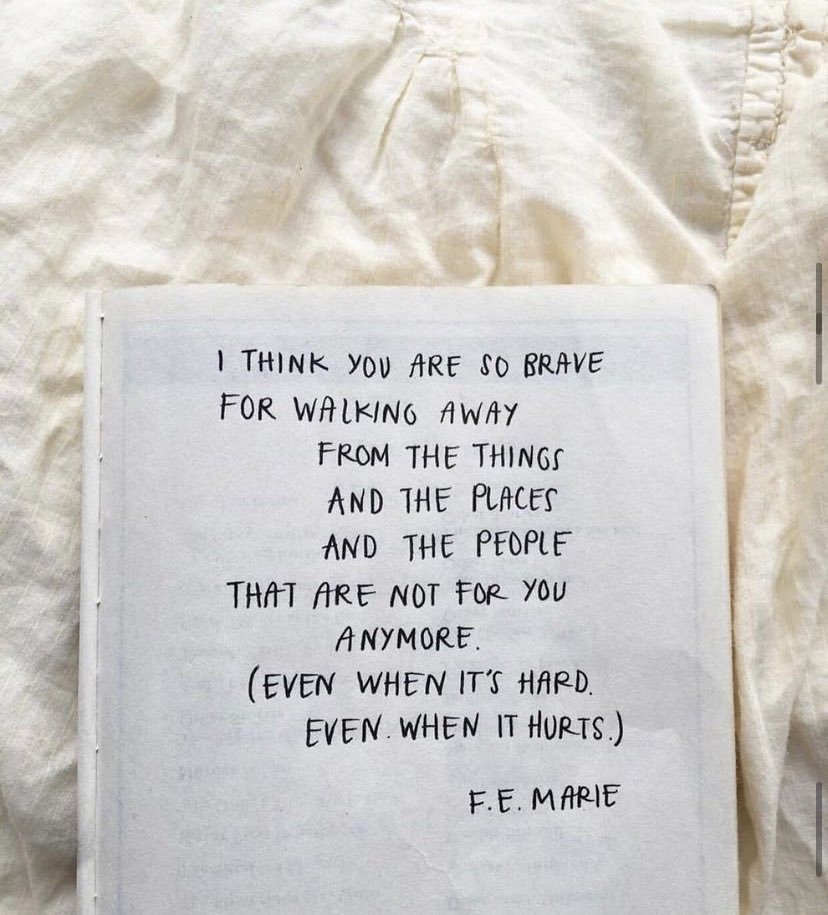 I THINK YOU ARE SO BRAVE
FOR WALKING AWAY
FROM THE THINGS
AND THE PLACES
AND THE PEOPLE
THAT ARE NOT FOR YOU
ANYMORE.
(EVEN WHEN IT'S HARD.
EVEN. WHEN IT HURTS.)
F.E. MARIE